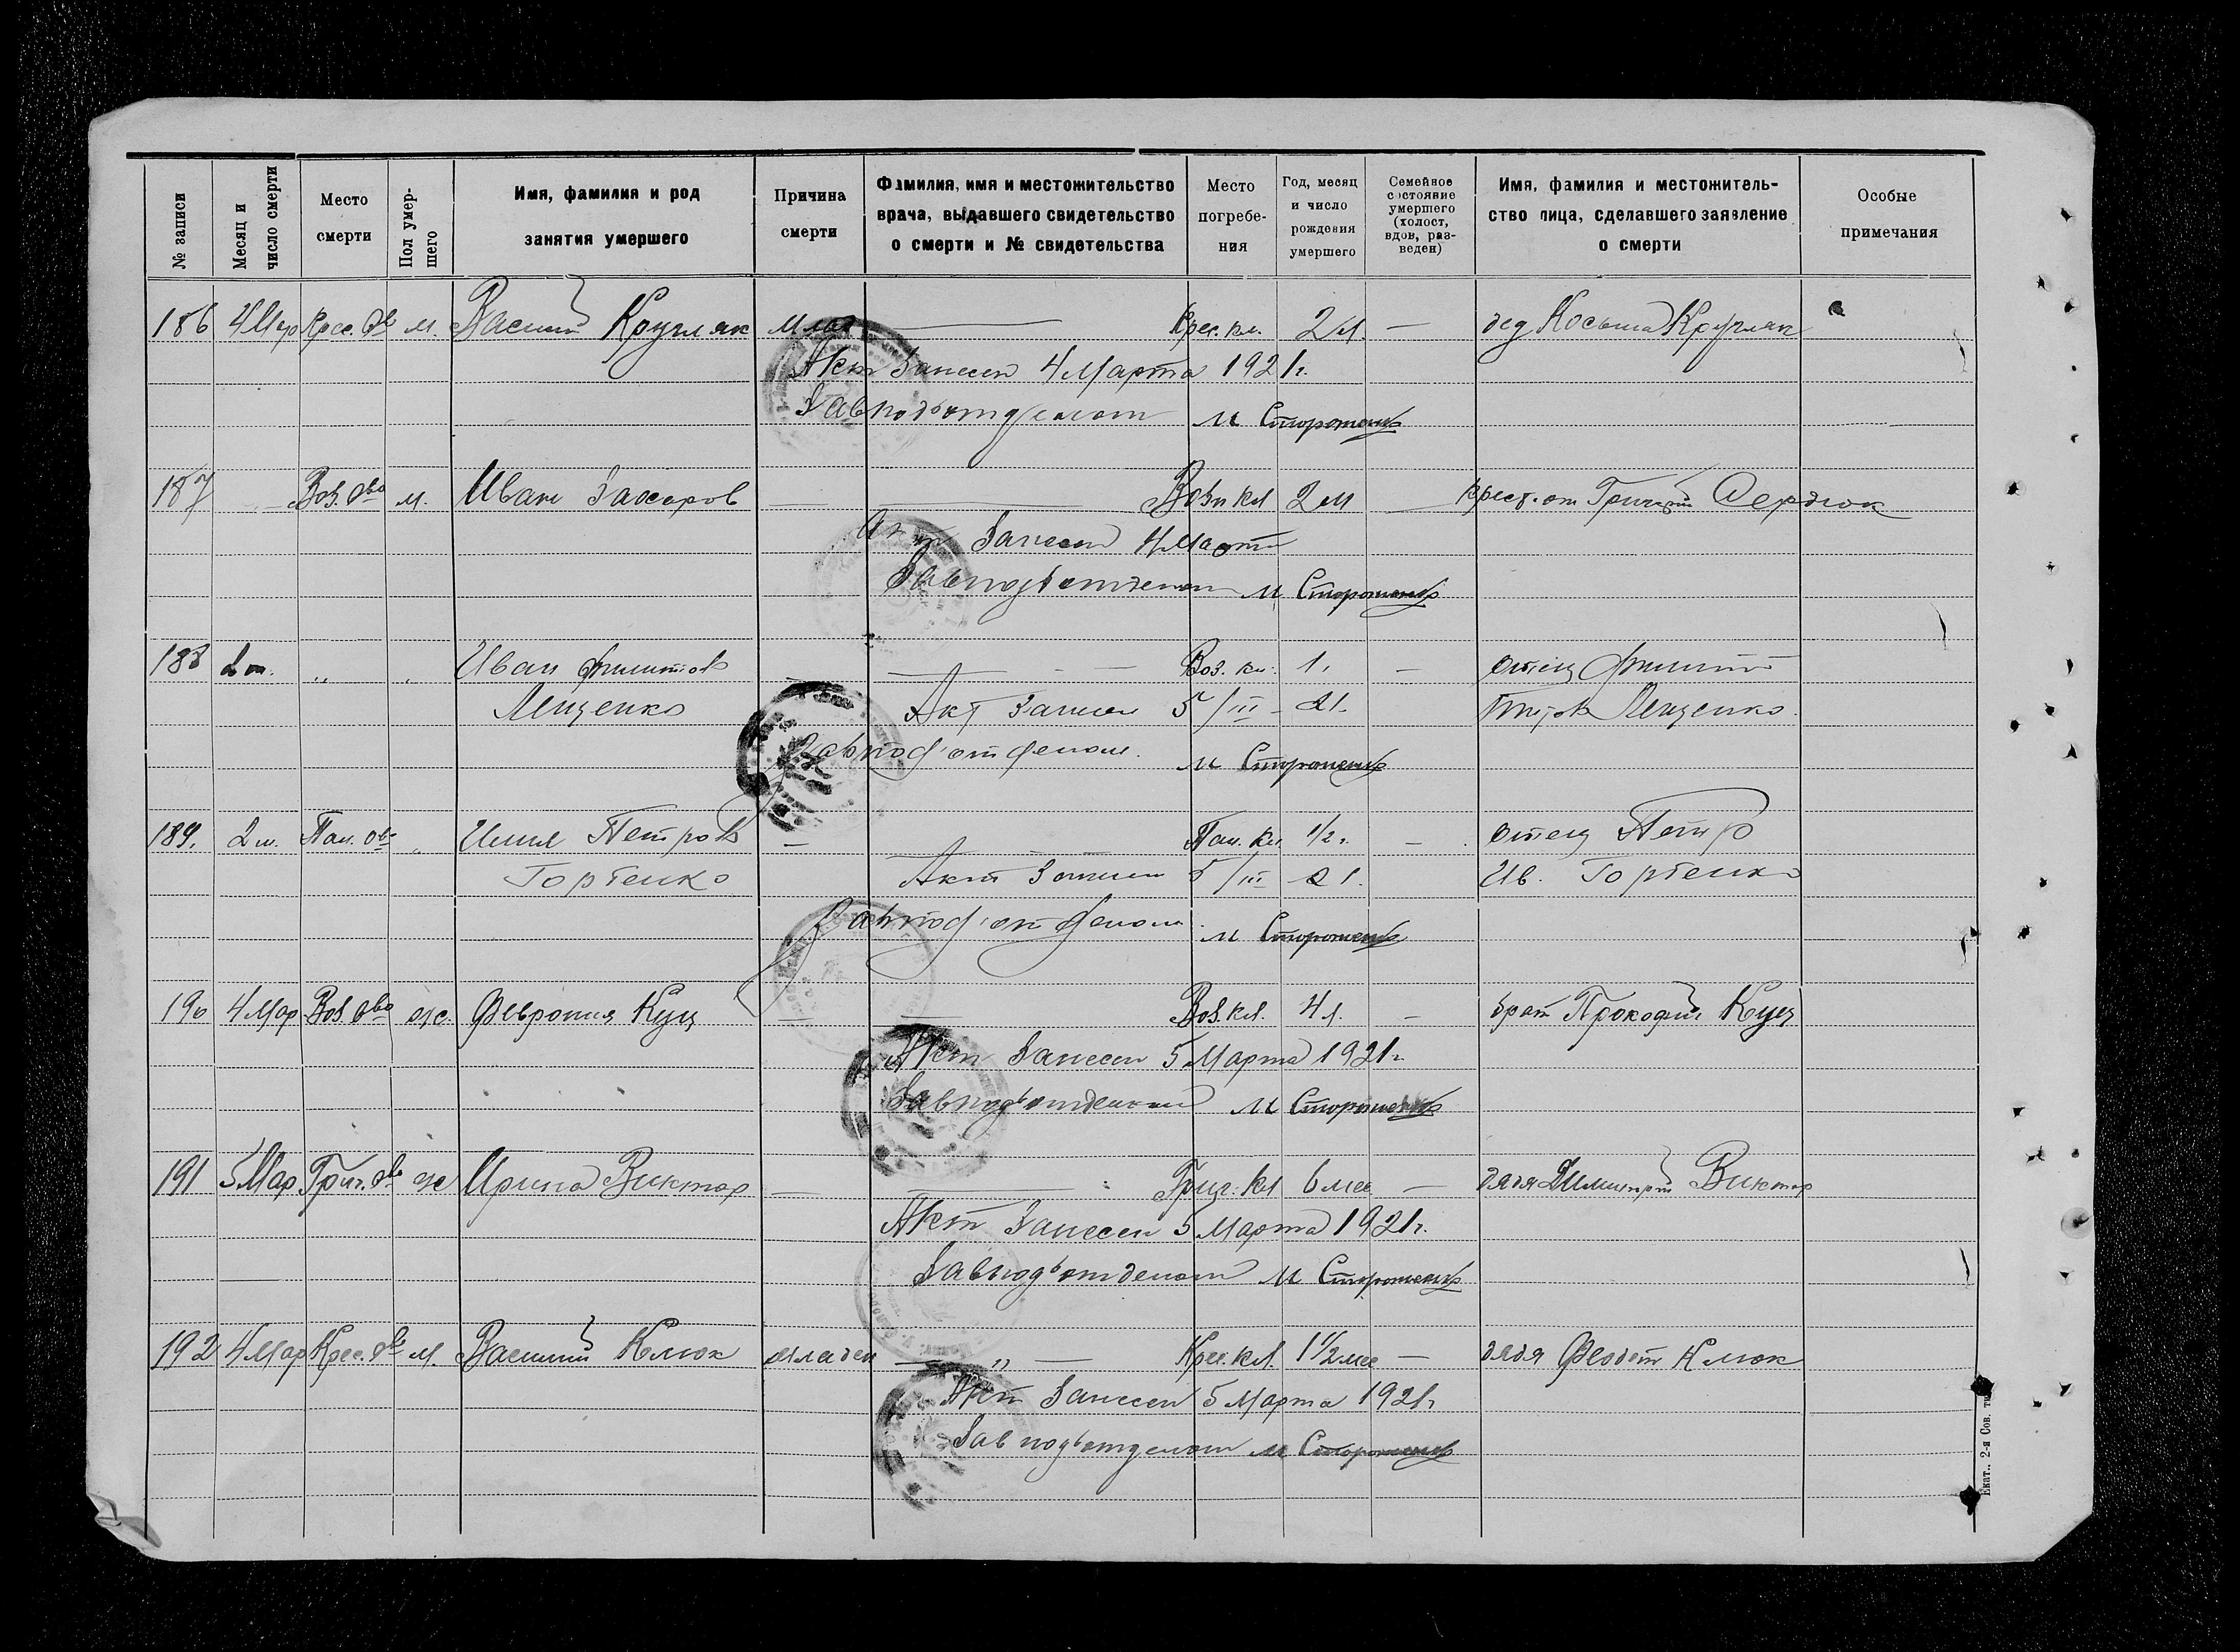 № записи
Месяц и число смерти
Место смерти
Пол умершего
Имя, фамилия и род занятия умершего
Причина смерти
Фамилия, имя и местожительство врача, выдавшего свидетельство о смерти и № свидетельства
Место погребения
Год, месяц и число рождения умершего
Семейное состояние умершего (холост, вдов, разведен)
Имя, фамилия и местожительство лица, сделавшего заявление о смерти
Особые примечания
186 4 Мар Крес. о-во м. Василий Кругляк млад — Крес. кл. 2 м. — дед Косьма Кругляк
Акт Занесен 4 Марта 1921 г.
Завподъотделом М Стороженко
187 Воз. о-во м. Иван Захаров — Возн кл 2 м — Григорий Сердюк
Акт Занесен 4 Марта
Завподъотделом М Стороженко
188 „ Иван Филиппов — Воз. кл. 1 — отец Филипп
Лещенко Акт Занесен 5/III-21. Лещенко
Завподъотделом. М Стороженко
189. 2 м. Пан. о-во „ Петров — Пан. кл. 1/2 г. — отец Петр
Гортенко Акт Занесен 5/III 21. Ив. Гортенко
Завподъотделом М Стороженко
190 4 Мар Воз. о-во ж. Феврония Куц — Воз. кл. 4 л. — брат Прокофий Куц
Акт Занесен 5 Марта 1921 г.
Завподъотделом М Стороженко
191 5 Мар Григ. о-во ж Ирина Виктор — Григ. кл 6 мес — дядя Димитрий Виктор
Акт Занесен 5 Марта 1921 г.
Завподъотделом М Стороженко
192 4 Мар Крес. о-во м. Василий Клюк младен — „ — Крес. кл. 1 1/2 мес — дядя Феодот Клюк
Акт Занесен 5 Марта 1921 г
Завподъотделом М Стороженко
Екат., 2-я Сов. тип.